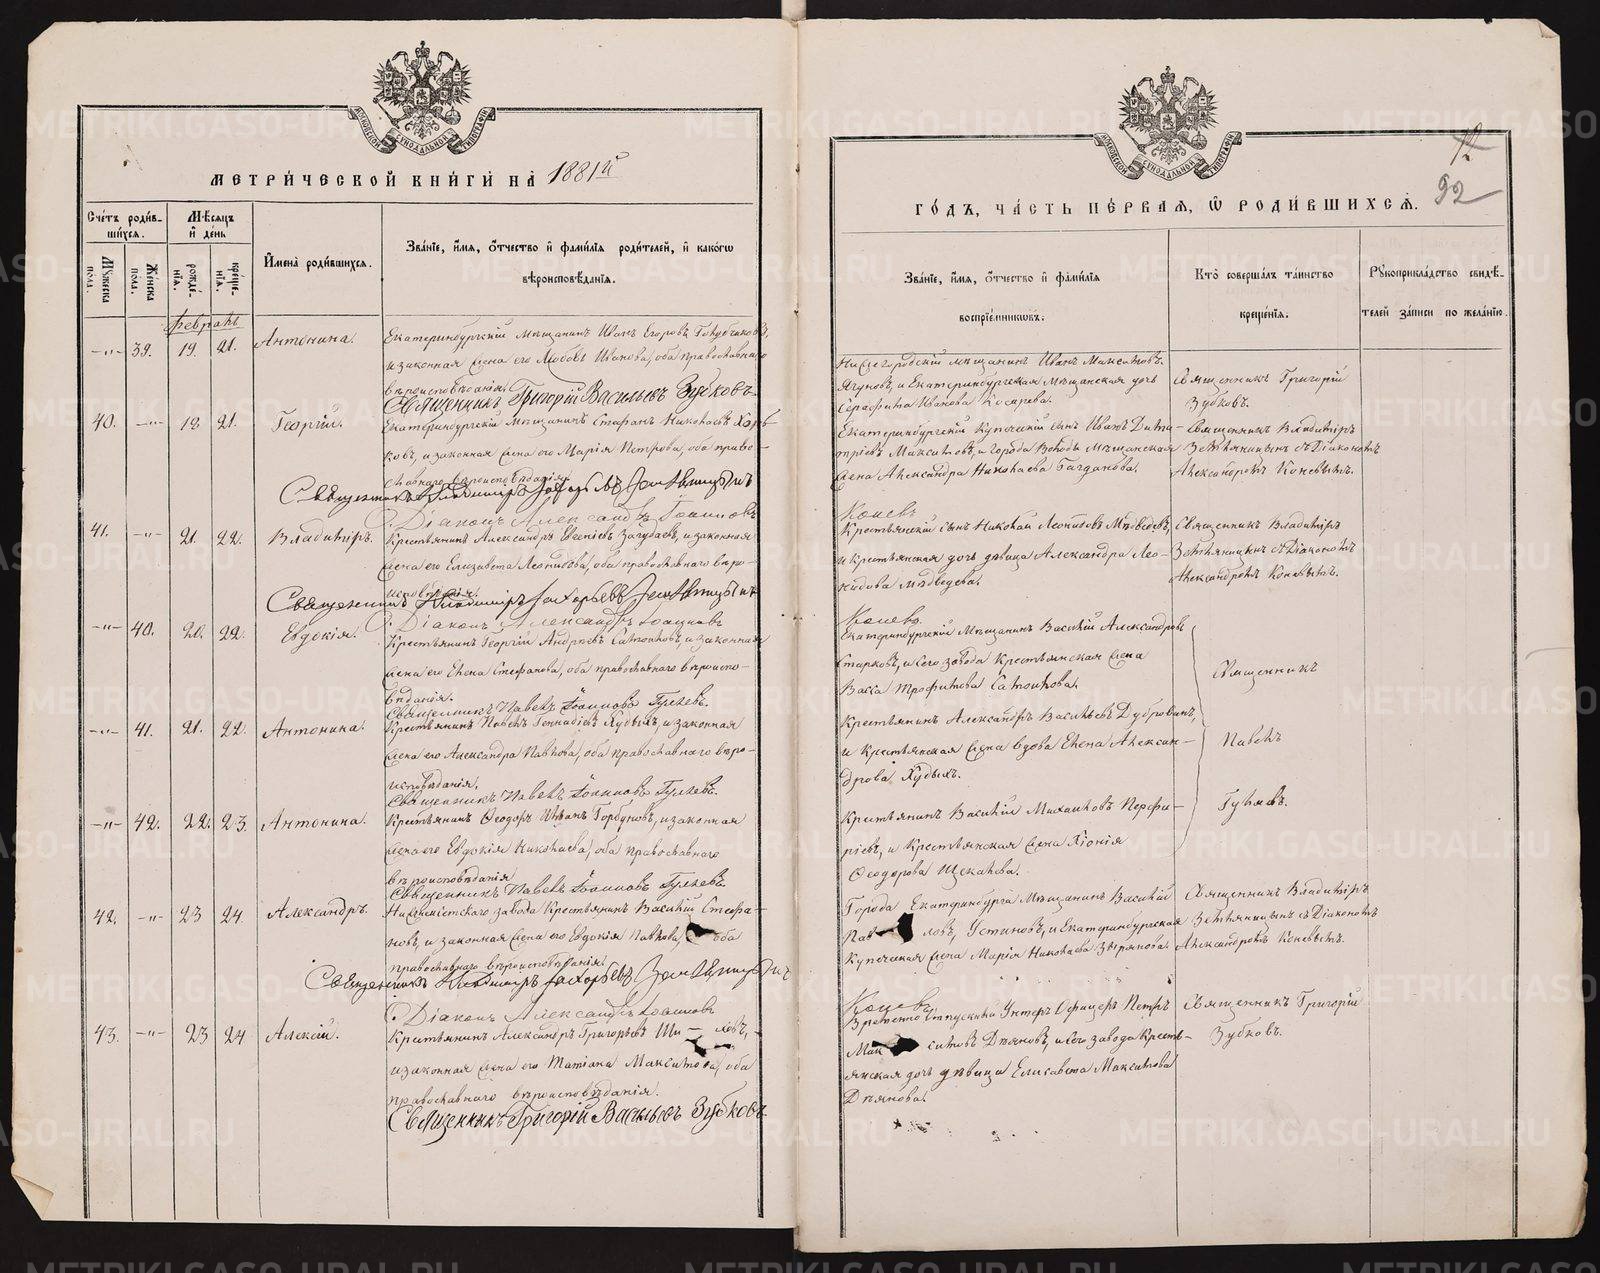 МЕТРИ́ЧЕСКОЙ КНИ́ГИ НА̀ 1881й
Сче́тъ роди́в-
ши́хся.
Мѣ́сяцъ
и҆ де́нь
Му́жеска
пола.
Же́нска
пола.
рожде́-
нїѧ.
креще́-
нїѧ.
И҆мена̀ роди́вшихсѧ.
Зва́нїе, и҆́мѧ, ѻ҆́тчество и҆ фами́лїѧ роди́телей, и҆ како́гѡ
вѣроисповѣ́данїѧ.
Февраль
—"— 39. 19. 21. Антонина. Екатеринбургскій Мѣщанинъ Иванъ Егоровъ Голубчиковъ,
и законная жена его Любовь Иванова, оба православнаго
вѣроисповѣданія.
Священникъ Григорій Васильевъ Зубковъ.
40. —"— 18 21. Георгій. Екатеринбургскій Мѣщанинъ Стефанъ Николаевъ
ковъ, и законная жена его Марія Петрова, оба право-
славнаго вѣроисповѣданія.
Священникъ Владиміръ Земляницынъ
Діаконъ Александръ Іоанновъ
41. —"— 21. 22. Владиміръ. Крестьянинъ Александръ Евгеніевъ Загудаевъ, и законная
жена его Елизавета Леонидова, оба православнаго вѣро-
исповѣданія.
Священникъ Владиміръ Земляницынъ
Діаконъ Александръ Іоанновъ
—"— 40. 20. 22. Евдокія. Крестьянинъ Георгій Андреевъ Самойловъ, и законная
жена его Елена Стефанова, оба православнаго вѣроиспо-
вѣданія.
Священникъ Павелъ Іоанновъ Гуляевъ.
—"— 41. 21. 22. Антонина. Крестьянинъ Павелъ Геннадіевъ Худыхъ, и законная
жена его Александра Павлова, оба православнаго вѣро-
исповѣданія.
Священникъ Павелъ Іоанновъ Гуляевъ.
—"— 42. 22. 23. Антонина. Крестьянинъ Ѳеодоръ Горбуновъ, и законная
жена его Евдокія Николаева, оба православнаго
вѣроисповѣданія
Священникъ Павелъ Іоанновъ Гуляевъ.
42. —"— 23 24 Александръ. завода Крестьянинъ Василій Стефа-
новъ, и законная жена его Евдокія Павлова, оба
православнаго вѣроисповѣданія.
Священникъ Владиміръ Земляницынъ
Діаконъ Александръ Іоанновъ
43. —"— 23 24 Алексій. Крестьянинъ Александръ Григорьевъ Ши ловъ,
и законная жена его Татіана Максимова, оба
православнаго вѣроисповѣданія.
Священникъ Григорій Васильевъ Зубковъ
12
92
ГО́ДЪ, ЧА́СТЬ ПЕ́РВАѦ, Ѡ҆ РОДИ́ВШИХСѦ.
Зва́нїе, и҆́мѧ, ѻ҆́тчество и҆ фами́лїѧ
воспрїе́мниковъ.
Кто̀ соверша́лъ та́инство
креще́нїѧ.
Рꙋкоприкла́дство свидѣ́-
телей за́писи по жела́нїю.
Нижегородскій мѣщанинъ Иванъ Максимовъ
Ягуновъ, и Екатеринбургская Мѣщанская дочь
Серафима Иванова Косарева.
Священникъ Григорій
Зубковъ.
Екатеринбургскій Купеческій сынъ Иванъ Дими-
тріевъ Максимовъ, и города Мѣщанская
жена Александра Николаева Багданова.
Священникъ Владиміръ
Земляницынъ съ Діакономъ
Александромъ Коневымъ.
Коневъ
Крестьянскій сынъ Николай Леонидовъ Медведевъ,
и Крестьянская дочь дѣвица Александра Лео-
нидова Медведева.
Священникъ Владиміръ
Земляницынъ съ Діакономъ
Александромъ Коневымъ.
Коневъ.
Екатеринбургскій Мѣщанинъ Василій Александровъ
Старковъ, и сего завода Крестьянская жена
Васса Трофимова Самойлова.
Священникъ
Крестьянинъ Александръ Васильевъ Дубровинъ,
и Крестьянская жена вдова Елена Алексан-
дрова Худыхъ.
Павелъ
Крестьянинъ Василій Михайловъ Перфи-
ріевъ, и Крестьянская жена Хіонія
Ѳеодорова Щекалева.
Гуляевъ.
Города Екатеринбурга Мѣщанинъ Василій
Пав ловъ, Устиновъ, и Екатеринбургская
Купеческая жена Марія Николаева Зырянова.
Священникъ Владиміръ
Земляницынъ съ Діакономъ
Александромъ Коневымъ.
Коневъ
Временно Отпускной Унтеръ Офицеръ Петръ
Мак симовъ Деяновъ, и сего завода Кресть-
янская дочь дѣвица Елисавета Максимова
Деянова.
Священникъ Григорій
Зубковъ.
METRIKI.GASO-URAL.RU